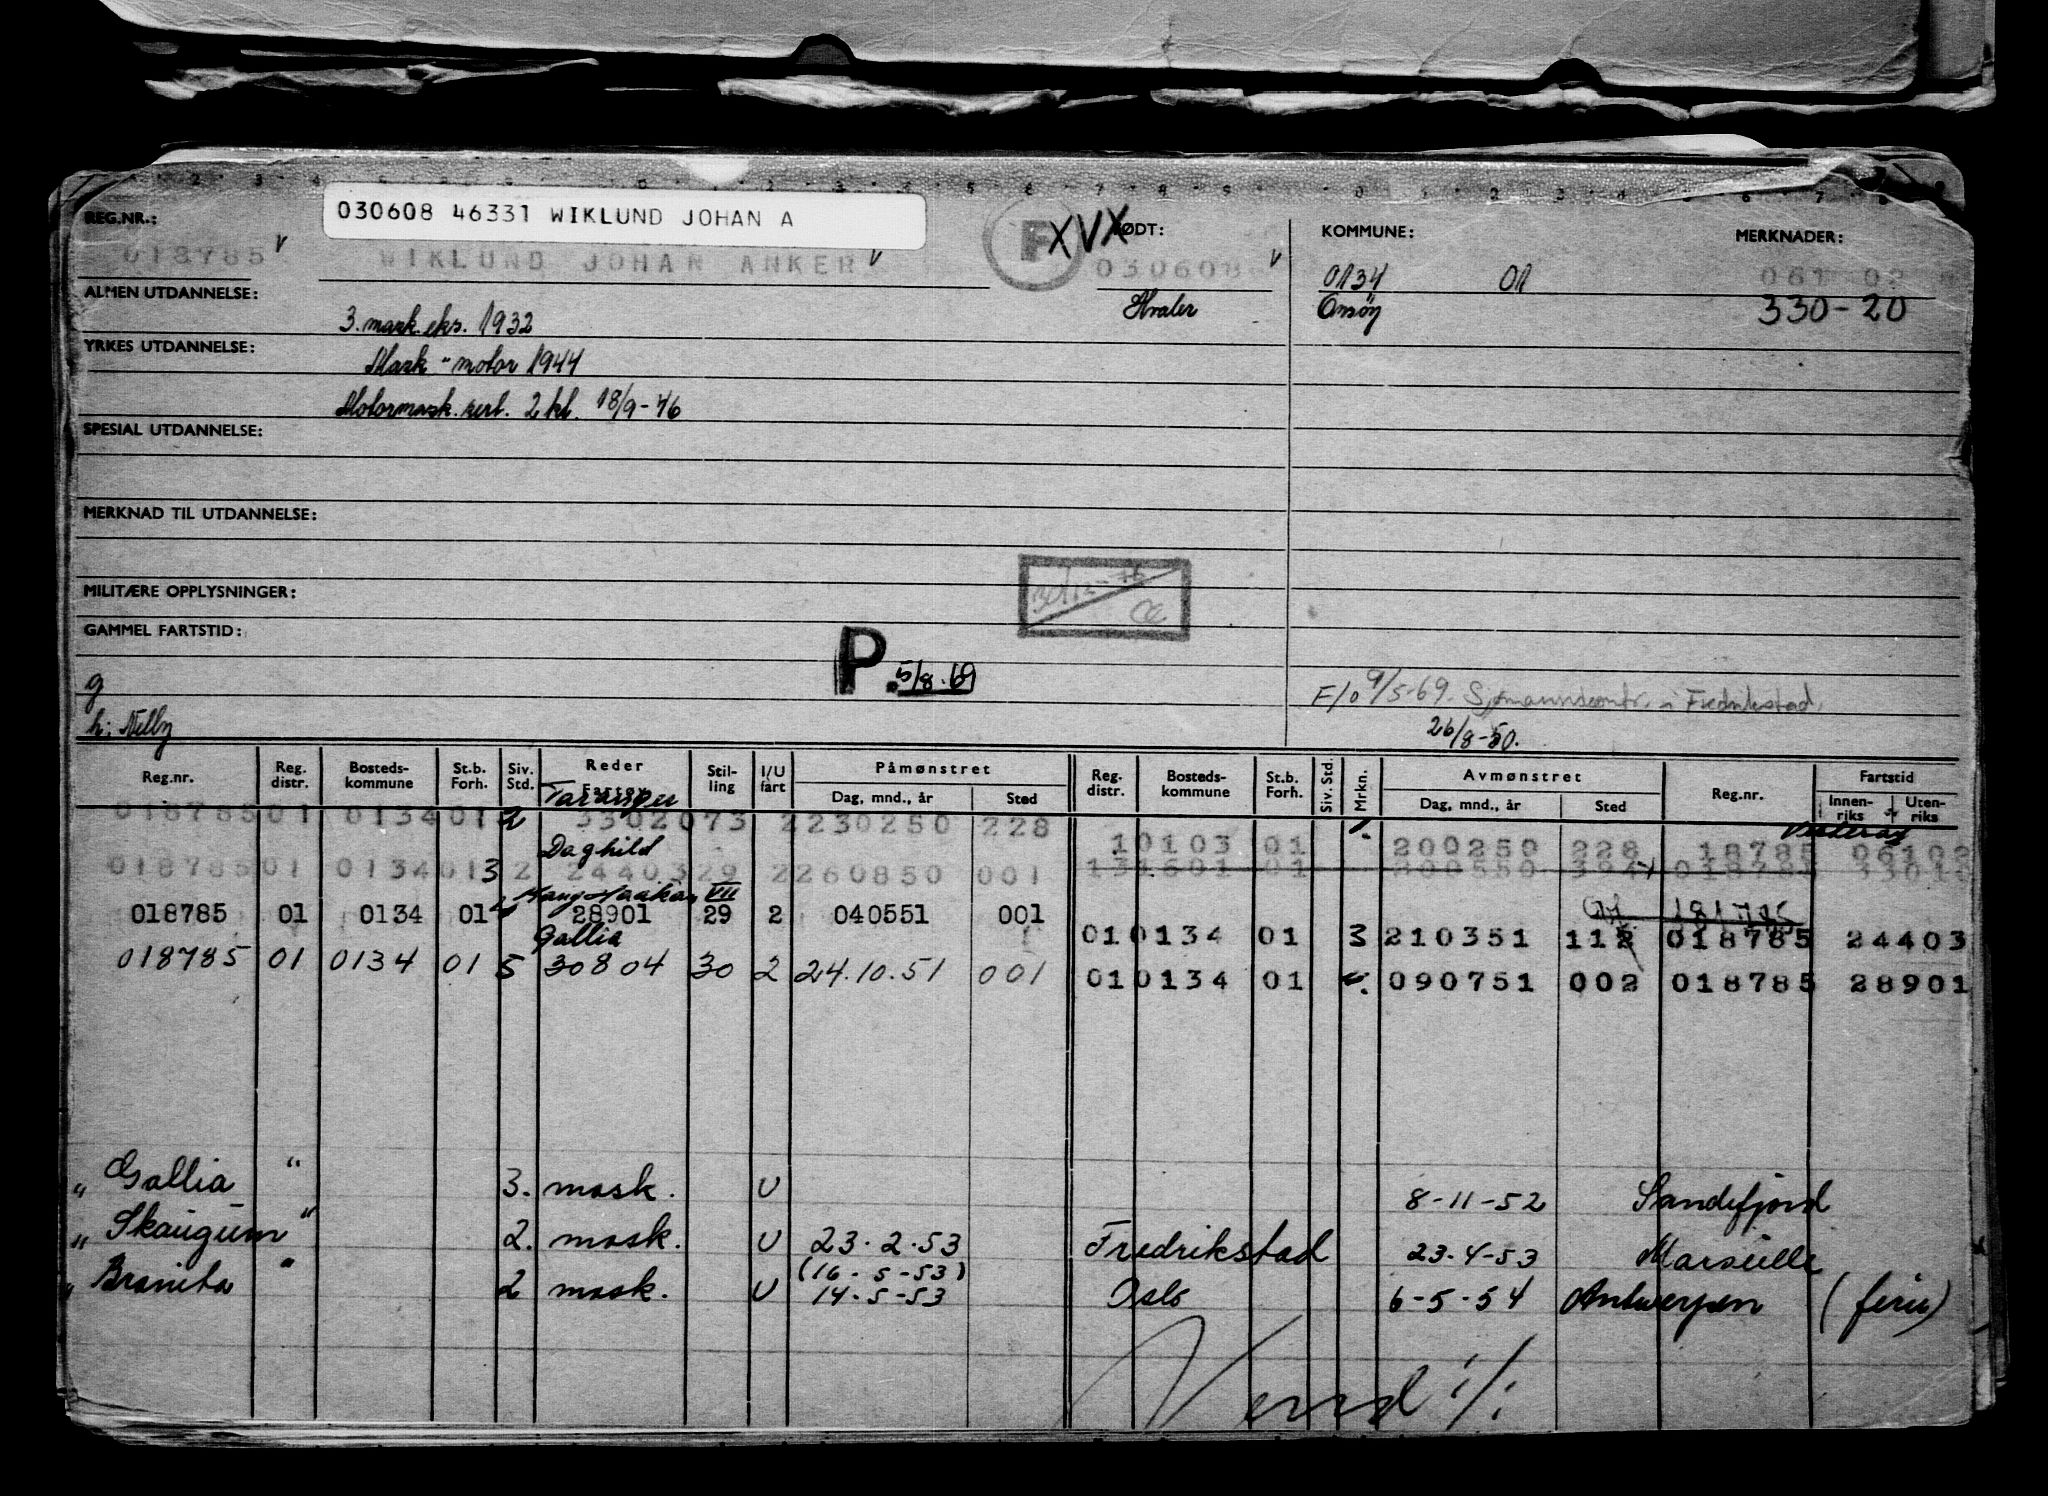 030608 46331 WIKLUND JOHAN A
REG.NR.: F XVX FØDT: KOMMUNE: MERKNADER:
018785 v WIKLUND JOHAN ANKER v 030608 v 0134 01 061 02
ALMEN UTDANNELSE: Hvaler Onsøy 330-20
3. mask. eks. 1932
YRKES UTDANNELSE:
Mask - motor 1944
Motormask. sert. 2 kl. 18/9-46
SPESIAL UTDANNELSE:
MERKNAD TIL UTDANNELSE:
MILITÆRE OPPLYSNINGER:
GAMMEL FARTSTID:
P. 5/8.69
g F/o 9/5-69. Sjømannskontr. i Fredrikstad,
h: Nelly 26/8-50.
Reg.nr. Reg. distr. Bosteds- kommune St.b. Forh. Siv. Std. Reder Stil- ling I/U fart Påmønstret Dag, mnd., år Sted Reg. distr. Bosteds- kommune St.b. Forh. Siv. Std. Mrkn. Avmønstret Dag, mnd., år Sted Reg.nr. Fartstid Innen- riks Uten- riks
018785 01 0134 01 2 3302073 2 230250 228
10103 01 200250 228 18785 06102
Daghild
018785 01 0134 01 3 2 2440329 2 260850 001
131601 01 200550 018785 33010
VII
018785 01 0134 01 28901 29 2 040551 001
010134 01 3 210351 112 018785 24403
Gallia
018785 01 0134 01 5 30804 30 2 24.10.51 001
010134 01 4. 090751 002 018785 28901
„ Gallia " 3. mask. U 8-11-52 Sandefjord
„ Skaugum " 2. mask. U 23.2.53 Fredrikstad 23.4-53 Marseille
(16-5-53)
„ Branita " 2 mask. U 14-5-53 Oslo 6-5-54 Antwerpen (ferie)
Vend :/: